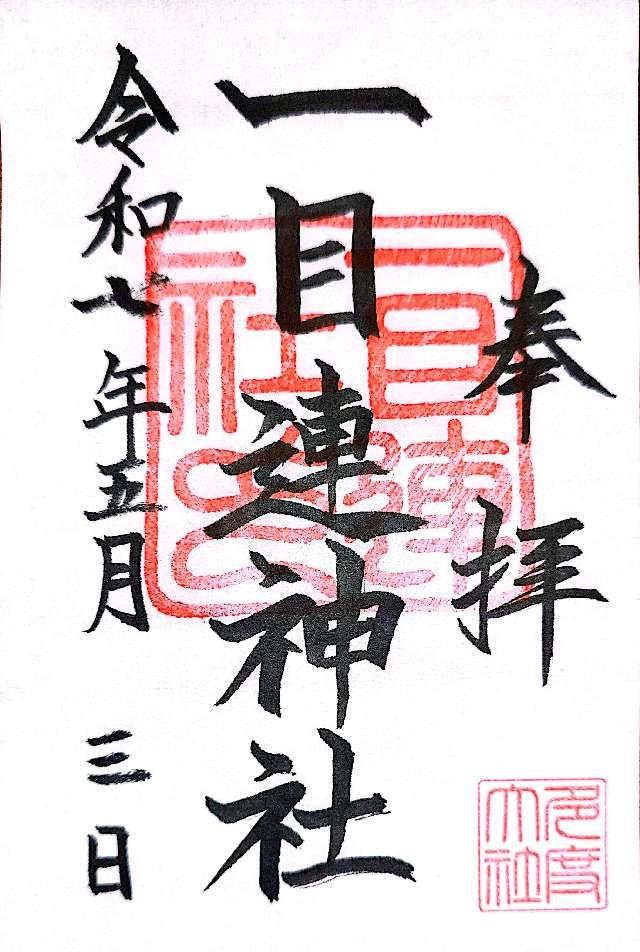 奉拝
一目連神社
令和七年五月三日
一目連社之印
多度大社